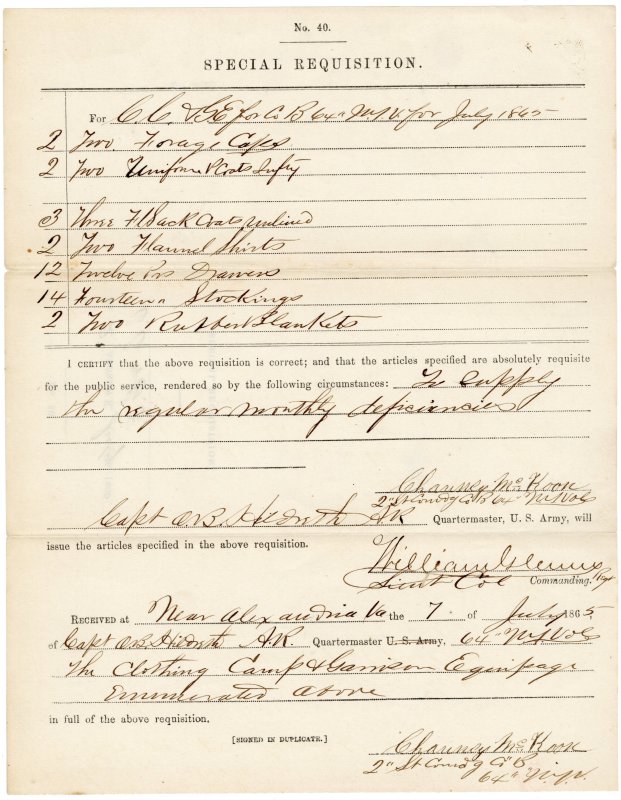 No. 40.
SPECIAL REQUISITION.
For C. C. & G E for Co B 64" N Y V for July 1865
2 Two Forage Caps
2 Two Uniform Coats Infty
3 Three F Sack Coats unlined
2 Two Flannel Shirts
12 Twelve Prs Drawers
14 Fourteen " Stockings
2 Two Rubber Blankets
I CERTIFY that the above requisition is correct; and that the articles specified are absolutely requisite
for the public service, rendered so by the following circumstances: To supply
the regular monthly deficiencies
Chauncey McKoon
2" Lt Comdg Co B 64" N.Y. Vols
Capt O. B. Hildreth A R Quartermaster, U. S. Army, will
issue the articles specified in the above requisition.
William Glenny
Lieut Col Commanding. Regt
RECEIVED at Near Alexandria Va the 7 of July 1865,
of Capt O. B. Hildreth A. R. Quartermaster U. S. Army, 64" N Y Vols
The Clothing Camp & Garrison Equipage
Enumerated above
in full of the above requisition.
[SIGNED IN DUPLICATE.]
Chauncey McKoon
2" Lt Comdg Co B
64" N.Y.V.